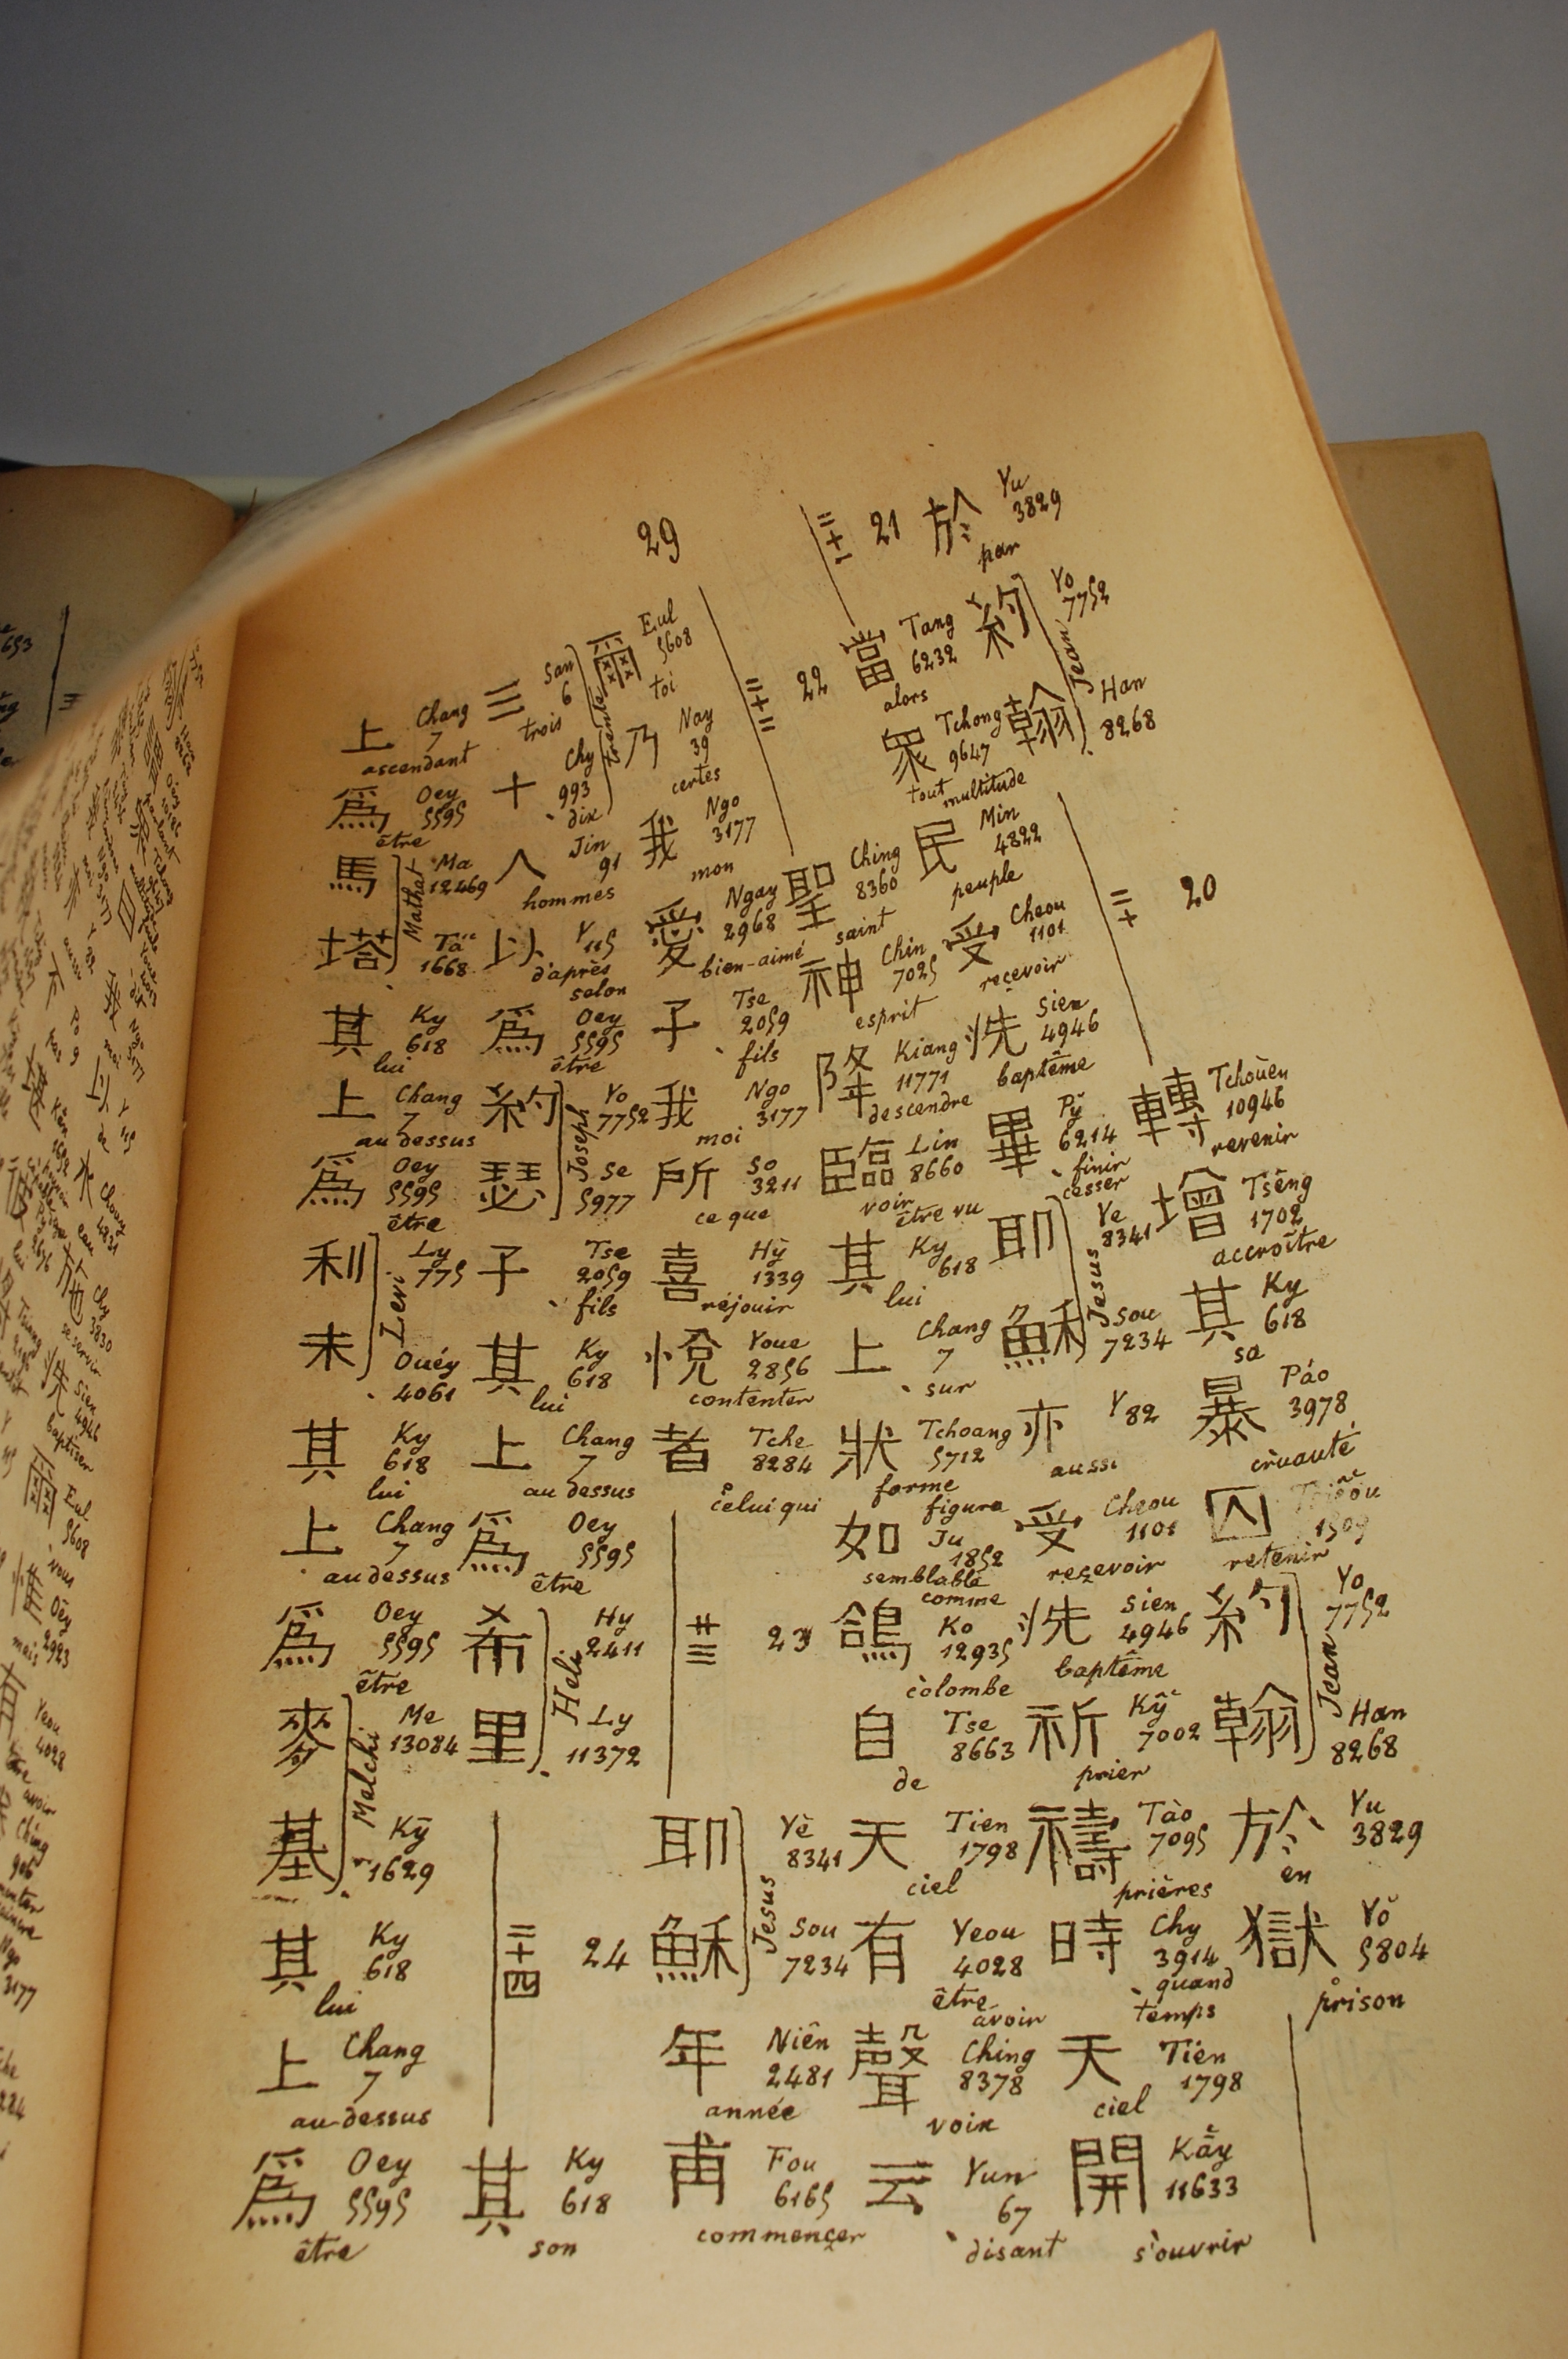 29
二十 20
轉 Tchouèn 10946 revenir
增 Tsēng 1702 accroître
其 Ky 618 sa
暴 Páo 3978 cruauté
囚 1509 retenir
約 Yo 7752
翰 Han 8268 Jean
於 Yu 3829 en
獄 Yŏ 5804 prison
二十一 21
於 Yu 3829 par
約 Yo 7752
翰 Han 8268 Jean
民 Min 4822 peuple
受 Cheou 1101 recevoir
洗 Sien 4946 baptême
畢 Pý 6214 finir cesser
耶 Ye 8341
穌 Sou 7234 Jesus
亦 Y 82 aussi
受 Cheou 1101 recevoir
洗 Sien 4946 baptême
祈 Kỹ 7002 prier
禱 Tào 7095 prières
時 Chy 3914 quand temps
天 Tien 1798 ciel
開 Kāy 11633 s'ouvrir
二十二 22
當 Tang 6232 alors
衆 Tchong 9647 tout multitude
聖 Ching 8360 saint
神 Chin 7025 esprit
降 Kiang 11771 descendre
臨 Lin 8660 voir être vu
其 Ky 618 lui
上 Chang 7 sur
狀 Tchoang 5712 forme figure
如 Ju 1852 semblable comme
鴿 Ko 12935 colombe
自 Tse 8663 de
天 Tien 1798 ciel
有 Yeou 4028 être avoir
聲 Ching 8378 voix
云 Yun 67 disant
爾 Eul 5608 toi
乃 Nay 39 certes
我 Ngo 3177 mon
愛 Ngay 2968 bien-aimé
子 Tse 2059 fils
我 Ngo 3177 moi
所 So 3211 ce que
喜 Hỳ 1339 réjouir
悅 Youe 2856 contenter
者 Tche 8284 celui qui
二十三 23
耶 Yè 8341
穌 Sou 7234 Jesus
年 Niên 2481 année
甫 Fou 6165 commencer
三 San 6 trois
十 Chy 993 dix
人 Jin 91 hommes
以 Y 115 d'après selon
爲 Oey 5595 être
約 Yo 7752
瑟 Se 5977 Joseph
子 Tse 2059 fils
其 Ky 618 lui
上 Chang 7 au dessus
爲 Oey 5595 être
希 Hy 2411
里 Ly 11372 Heli
二十四 24
其 Ky 618 son
上 Chang 7 ascendant
爲 Oey 5595 être
馬 Ma 12469
塔 Tă 1668 Mathat
其 Ky 618 lui
上 Chang 7 au dessus
爲 Oey 5595 être
利 Ly 775
未 Ouéy 4061 Levi
其 Ky 618 lui
上 Chang 7 au dessus
爲 Oey 5595 être
麥 Me 13084
基 Kȳ 1629 Malchi
其 Ky 618 lui
上 Chang 7 au dessus
爲 Oey 5595 être